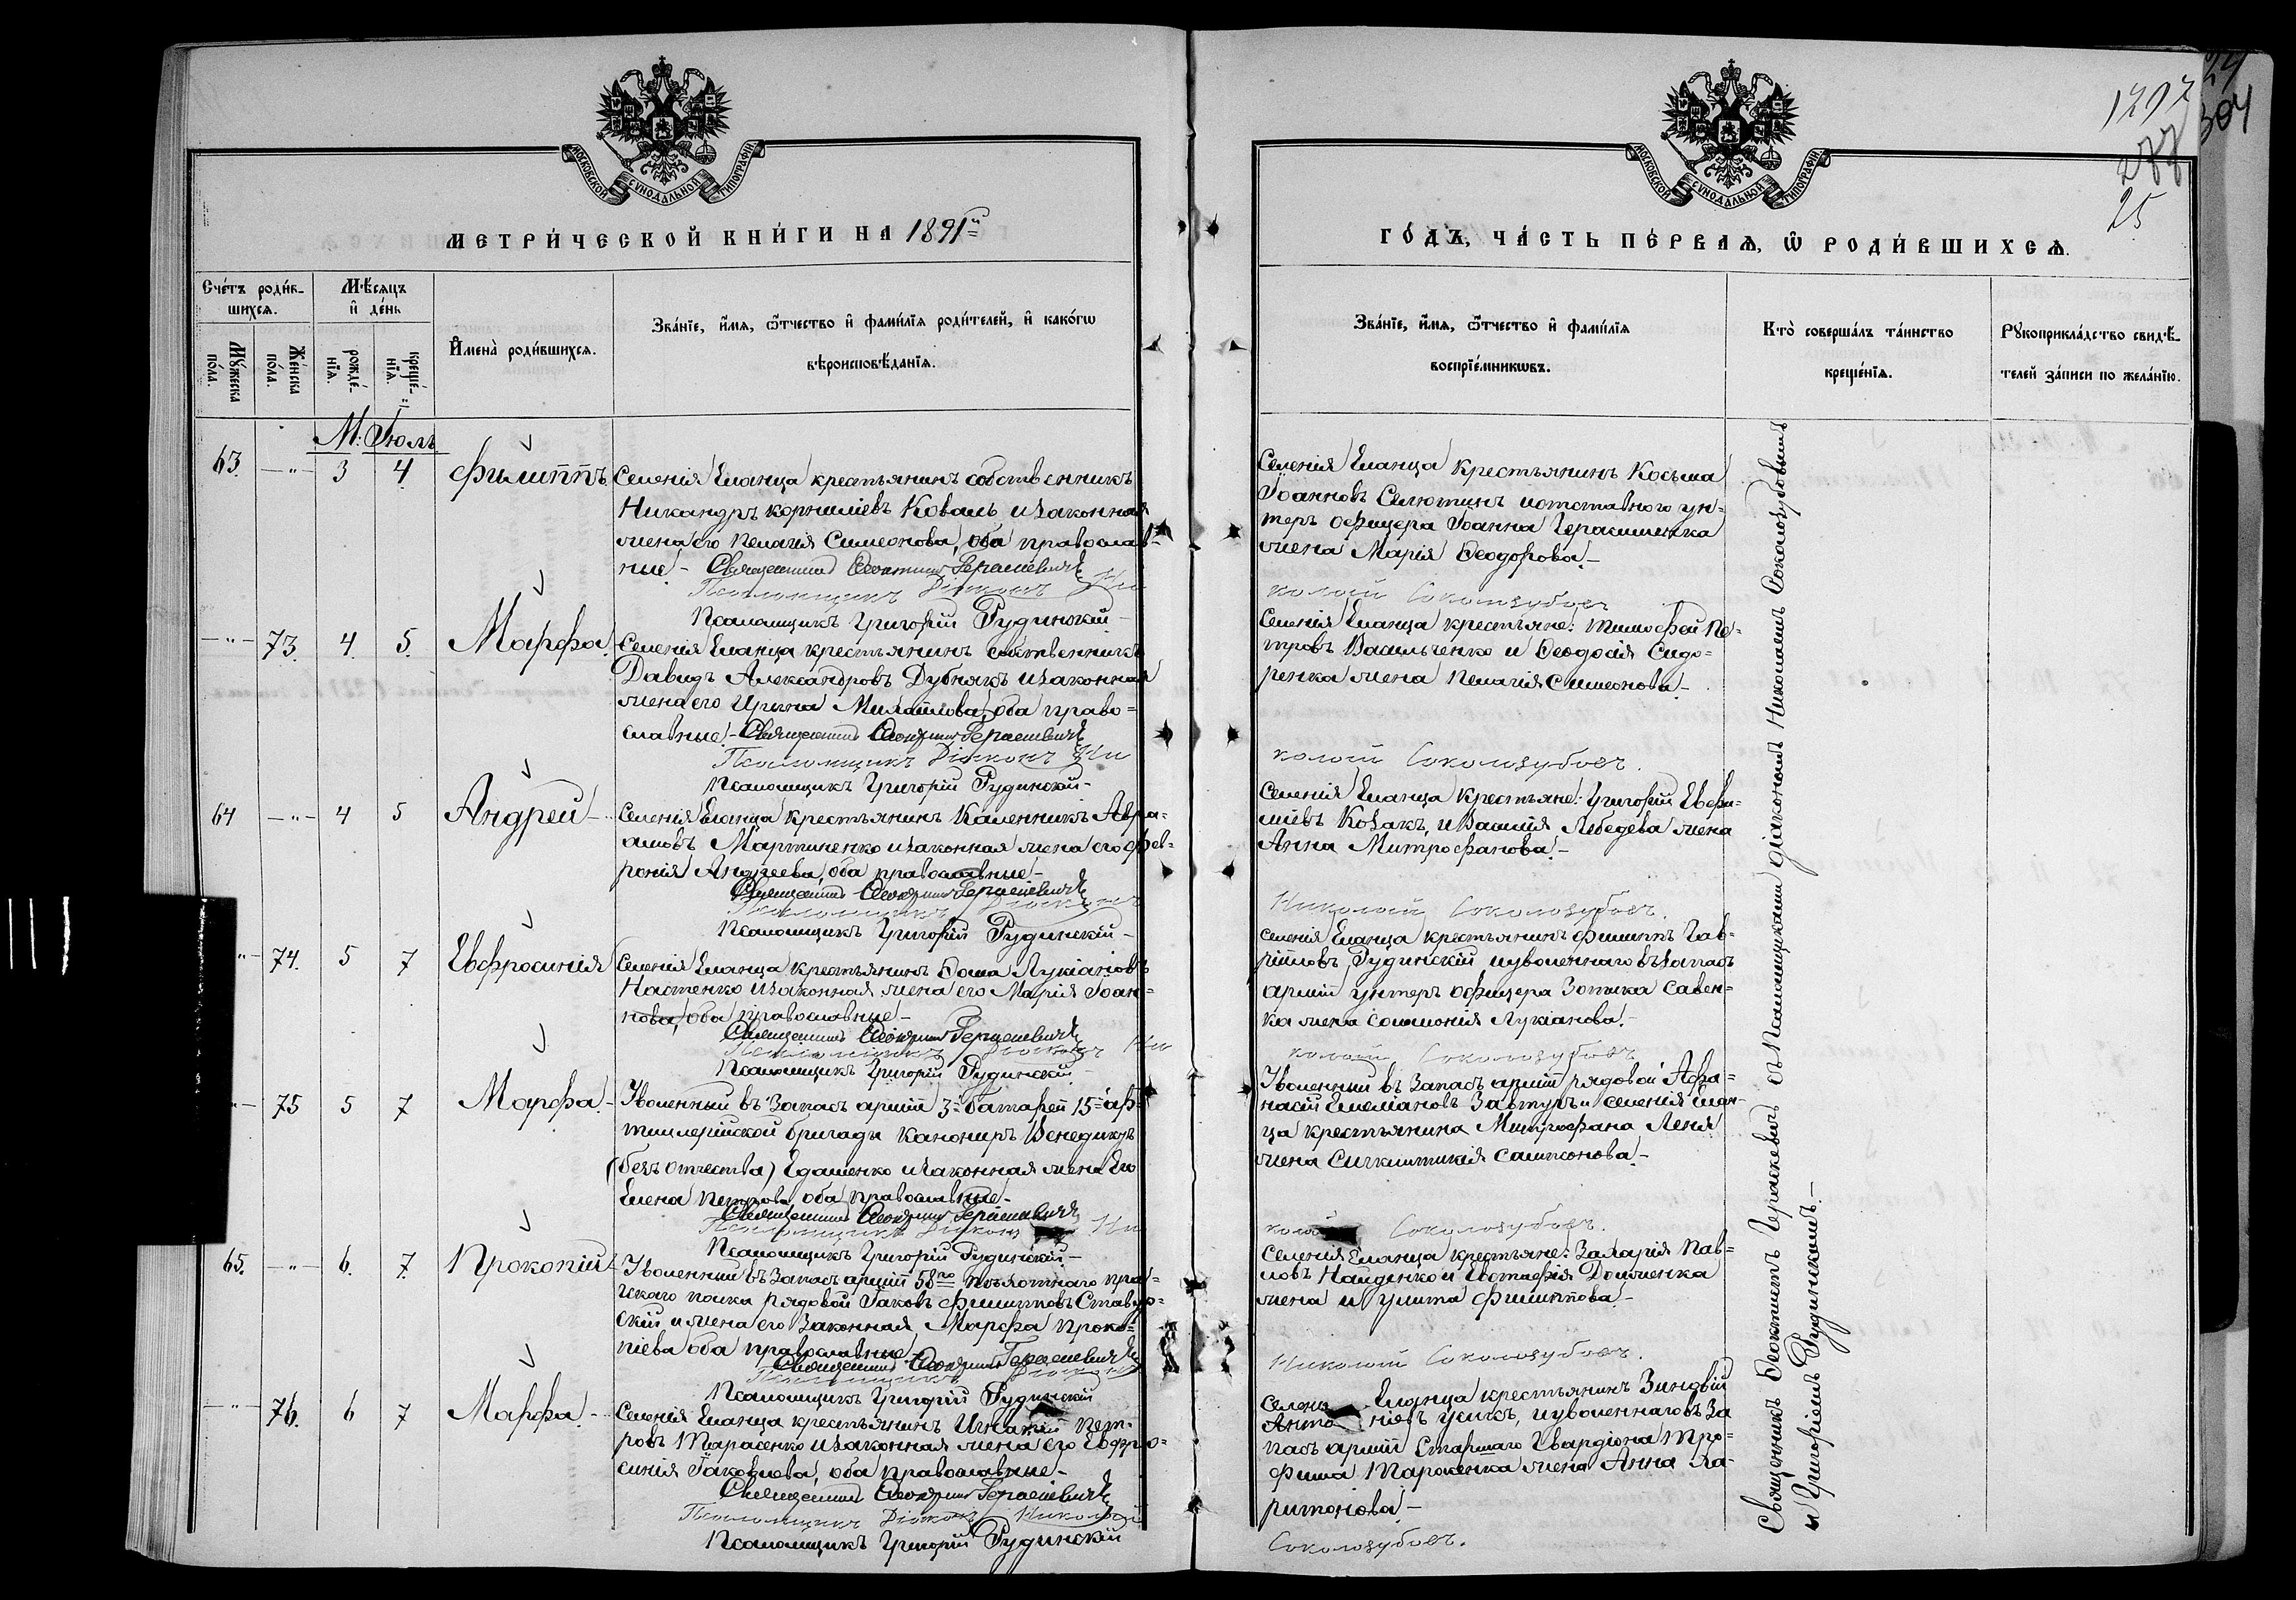 1292
24
304
277
25
МОСКОВСКОЙ СУНОДАЛЬНОЙ ТИПОГРАФІИ
МОСКОВСКОЙ СУНОДАЛЬНОЙ ТИПОГРАФІИ
МЕТРИ́ЧЕСКОЙ КНИ́ГИ НА 1891й
ГО́ДЪ, ЧА́СТЬ ПЕ́РВАѦ, Ѡ РОДИ́ВШИХСѦ.
Сче́тъ роди́в-
шихсѧ.
Мꙋ́жеска по́ла.
Же́нска по́ла.
Мѣ́сѧцъ и҆ де́нь
рожде́-нїѧ.
креще́-нїѧ.
И҆мена̀ роди́вшихсѧ.
Зва́нїе, и҆́мѧ, ѻ҆́тчество и҆ фами́лїѧ роди́телей, и҆ како́гѡ
вѣроисповѣ́данїѧ.
Зва́нїе, и҆́мѧ, ѻ҆́тчество и҆ фами́лїѧ
воспрїе́мникѡвъ.
Кто̀ соверша́лъ та́инство
креще́нїѧ.
Рꙋкоприкла́дство свидѣ́-
телей за́писи по жела́нїю.
М: Іюль
63. —"— 3 4. Филиппъ Селенія Еланца крестьянинъ собственникъ
Никандръ Корниліевъ Коваль и законная
жена его Пелагія Симеонова, оба православ-
ные.— Священникъ Ѳеоктистъ Герасіевичъ
Псаломщикъ Діяконъ Ни
Псаломщикъ Григорій Рудинскій
Селенія Еланца крестьянинъ Косьма
Іоанновъ Селютинъ и отставного ун-
теръ офицера Іоанна Герасименка
жена Марія Ѳеодорова.—
колай Соколозубовъ
—"— 73. 4. 5. Марфа. Селенія Еланца крестьянинъ собственникъ
Давидъ Александровъ Дубнякъ и законная
жена его Ирина Михаилова, оба право-
славные.— Священникъ Ѳеоктистъ Герасіевичъ
Псаломщикъ Діяконъ Ни
Псаломщикъ Григорій Рудинскій
Селенія Еланца крестьяне: Тимофей Пе-
тровъ Васильченко и Ѳеодосія Сидо-
ренка жена Пелагія Симеонова.—
колай Соколозубовъ.
64 —"— 4 5 Андрей— Селенія Еланца крестьянинъ Каленникъ Авра-
амовъ Мартиненко и законная жена его Фев-
ронія Андреева, оба православные—
Священникъ Ѳеоктистъ Герасіевичъ
Псаломщикъ Діяконъ
Псаломщикъ Григорій Рудинскій—
Селенія Еланца крестьяне: Григорій Евфи-
міевъ Козакъ, и Василія Лебедева жена
Анна Митрофанова.—
Николай Соколозубовъ.
—"— 74. 5 7 Евфросинія Селенія Еланца крестьянинъ Ѳома Лукіановъ
Настенко и законная жена его Марія Іоан-
нова, оба православные—
Священникъ Ѳеоктистъ Герасіевичъ
Псаломщикъ Діяконъ Ни
Псаломщикъ Григорій Рудинскій
Селенія Еланца крестьянинъ Филиппъ Гав-
ріиловъ Рудинскій и уволеннаго въ запасъ
арміи унтеръ офицера Зотика Савен-
ка жена Соломонія Лукіанова.—
колай Соколозубовъ
—"— 75 5 7 Марфа.— Уволенный въ запасъ арміи 3й батареи 15й ар-
тиллерійской бригады канониръ Венедиктъ
(безъ отчества) Едашенко и законная жена его
Елена Петрова оба православные—
Священникъ Ѳеоктистъ Герасіевичъ
Псаломщикъ Діяконъ Ни
Псаломщикъ Григорій Рудинскій—
Уволенный въ запасъ арміи рядовой Афа-
насій Емеліановъ Завтуръ и селенія Елан-
ца крестьянина Митрофана Леня
жена Синклитикія Сампсонова.—
колай Соколозубовъ.
65. —"— 6. 7. Прокопій Уволенный въ запасъ арміи 58го пѣхотнаго праг-
скаго полка рядовой Іаковъ Филипповъ Ставро-
скій и жена его законная Марфа Проко-
піева оба православные—
Священникъ Ѳеоктистъ Герасіевичъ
Псаломщикъ Діяконъ
Псаломщикъ Григорій Рудинскій
Селенія Еланца крестьяне: Захарія Пав-
ловъ Найденко и Евстафія Долженка
жена Іулита Филиппова.—
Николай Соколозубовъ.
—"— 76. 6 7 Марфа.— Селенія Еланца крестьянинъ Игнатій Пет-
ровъ Тарасенко и законная жена его Евфро-
синія Іаковлева, оба православные—
Священникъ Ѳеоктистъ Герасіевичъ
Псаломщикъ Діяконъ Николай
Псаломщикъ Григорій Рудинскій
Селенія Еланца крестьянинъ Зиновій
Антоніевъ Усикъ, и уволеннаго въ за
пасъ арміи Старшаго Гвардіона Тро-
фима Тарасенка жена Анна Ха-
ритонова.—
Соколозубовъ.
Священникъ Ѳеоктистъ Герасіевичъ съ Псаломщиками діакономъ Николаемъ Соколозубовымъ
и Григоріемъ Рудинскимъ.—